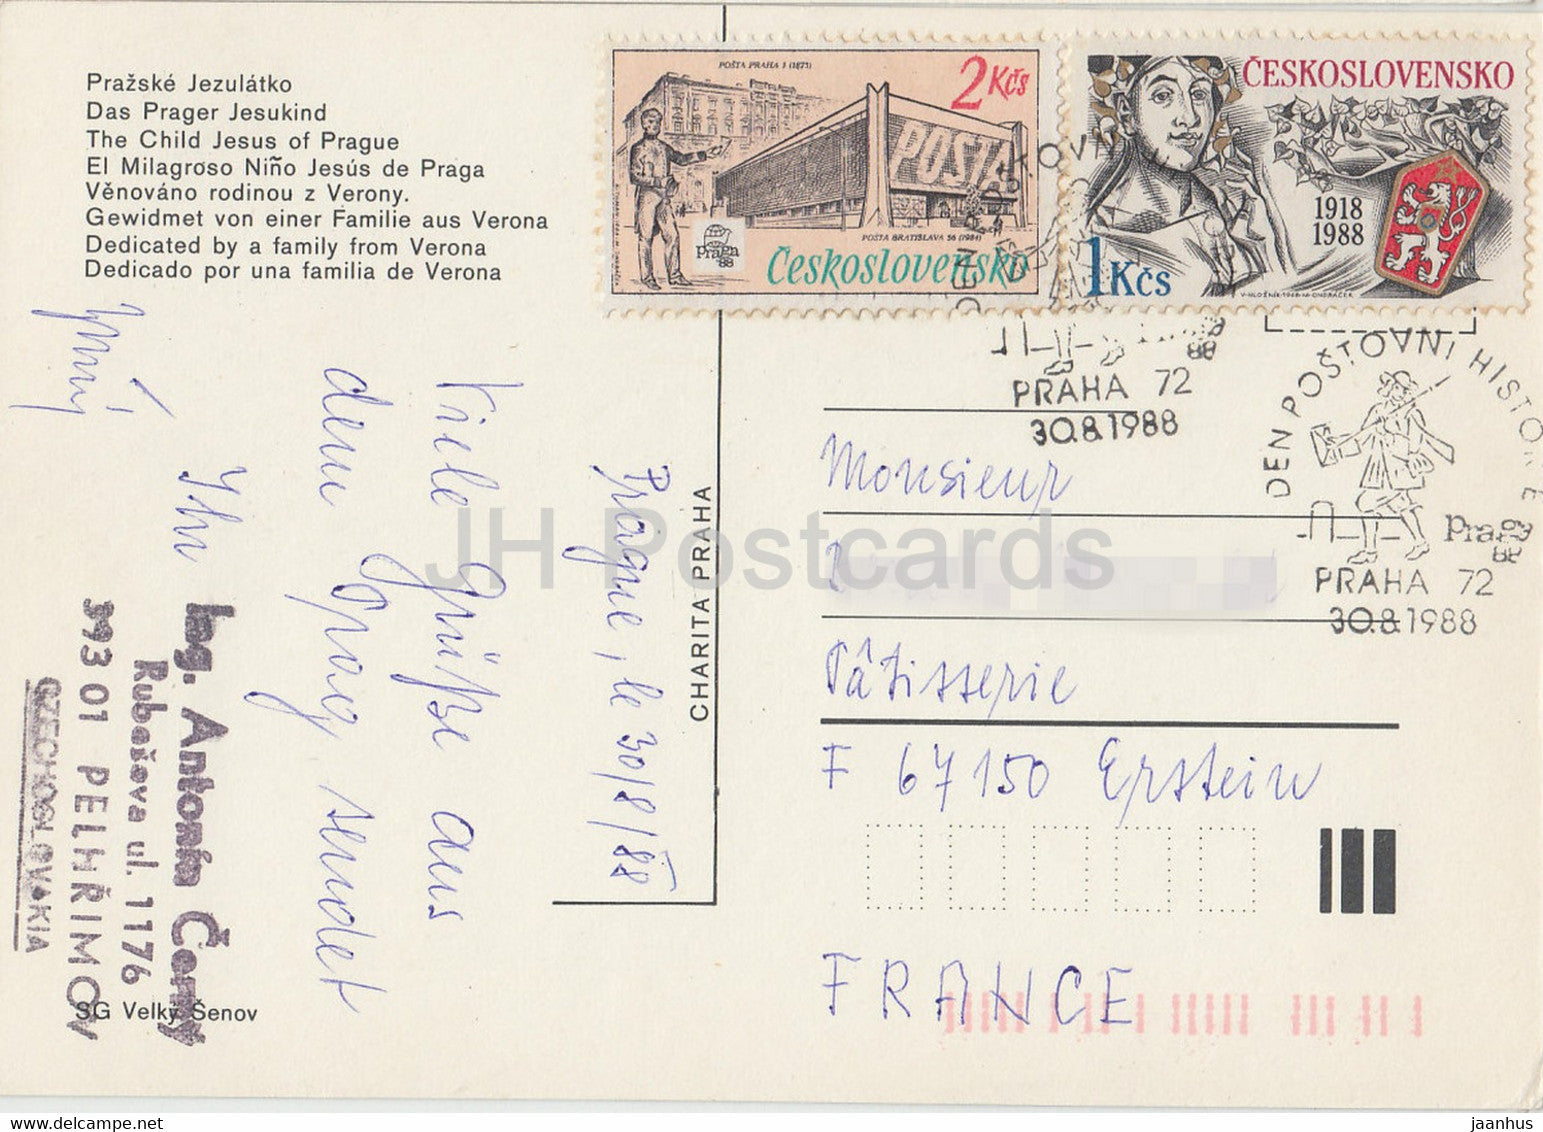 Pražské Jezulátko
Das Prager Jesukind
The Child Jesus of Prague
El Milagroso Niño Jesús de Praga
Věnováno rodinou z Verony.
Gewidmet von einer Familie aus Verona
Dedicated by a family from Verona
Dedicado por una familia de Verona
POŠTA PRAHA 1 (1873)
2 Kčs
POŠTA
POŠTA BRATISLAVA 56 (1984)
praga 88
Československo
ČESKOSLOVENSKO
1918
1988
1 Kčs
PRAHA 72
30.8.1988
DEN POŠTOVNÍ HISTORIE
praga 88
PRAHA 72
30.8.1988
Prague, le 30/8/88
Viele Grüße aus
dem Prag, sendet
Ihr
Ing. Antonín Černý
Rubešova ul. 1176
393 01 PELHŘIMOV
CZECHOSLOVAKIA
CHARITA PRAHA
Monsieur
Pâtisserie
F 67150 Erstein
FRANCE
SG Velký Šenov
JH Postcards
www.delcampe.net
jaanhus